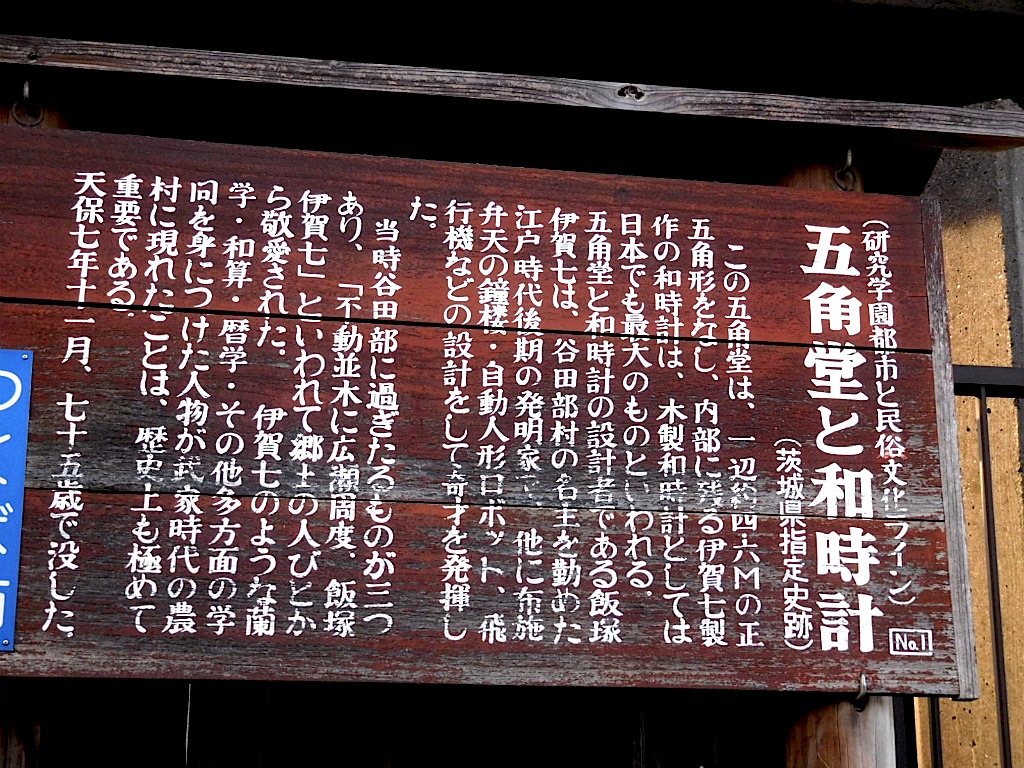 (研究学園都市と民俗文化ライン)
五角堂と和時計
No.1
(茨城県指定史跡)
この五角堂は、一辺約四・六Mの正
五角形をなし、内部に残る伊賀七製
作の和時計は、木製和時計としては
日本でも最大のものといわれる。
五角堂と和時計の設計者である飯塚
伊賀七は、谷田部村の名主を勤めた
江戸時代後期の発明家で、他に布施
弁天の鐘楼・自動人形ロボット、飛
行機などの設計をして奇才を発揮し
た。
当時谷田部に過ぎたるものが三つ
あり、「不動並木に広瀬周度、飯塚
伊賀七」といわれて郷土の人びとか
ら敬愛された。 伊賀七のような蘭
学・和算・暦学・その他多方面の学
問を身につけた人物が武家時代の農
村に現れたことは、歴史上も極めて
重要である。
天保七年十一月、七十五歳で没した。